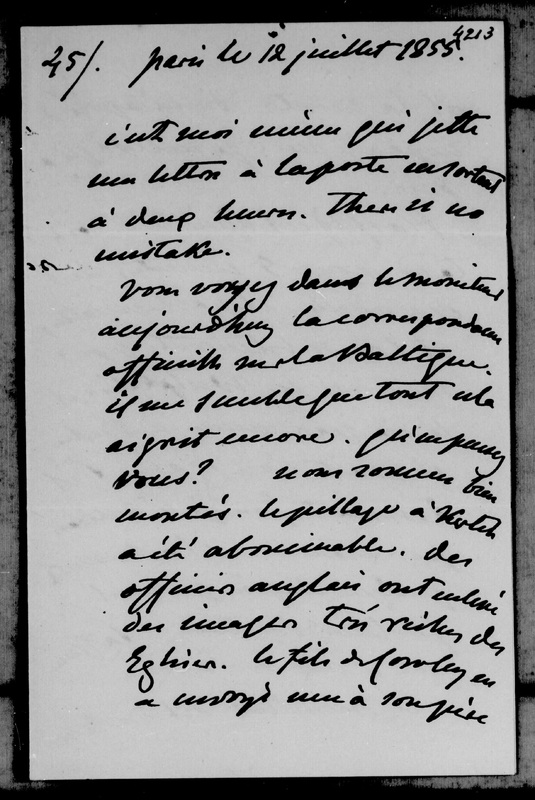 4213
45/. paris le 12 juillet 1855.
c'est moi même qui jette
ma lettre à la poste en sortant
à deux heures. There is no
mistake.
vous voyez dans le moniteur
aujourd'huy la correspondance
officielle sur la Baltique.
il me semble que tout cela
aigrit encore. qu'en pensez
vous? nous sommes bien
montés. le pillage à Kertch
a été abominable. des
officiers anglais ont enlevé
des images très riches des
Eglises. le fils de Cowley en
a envoyé une à son père